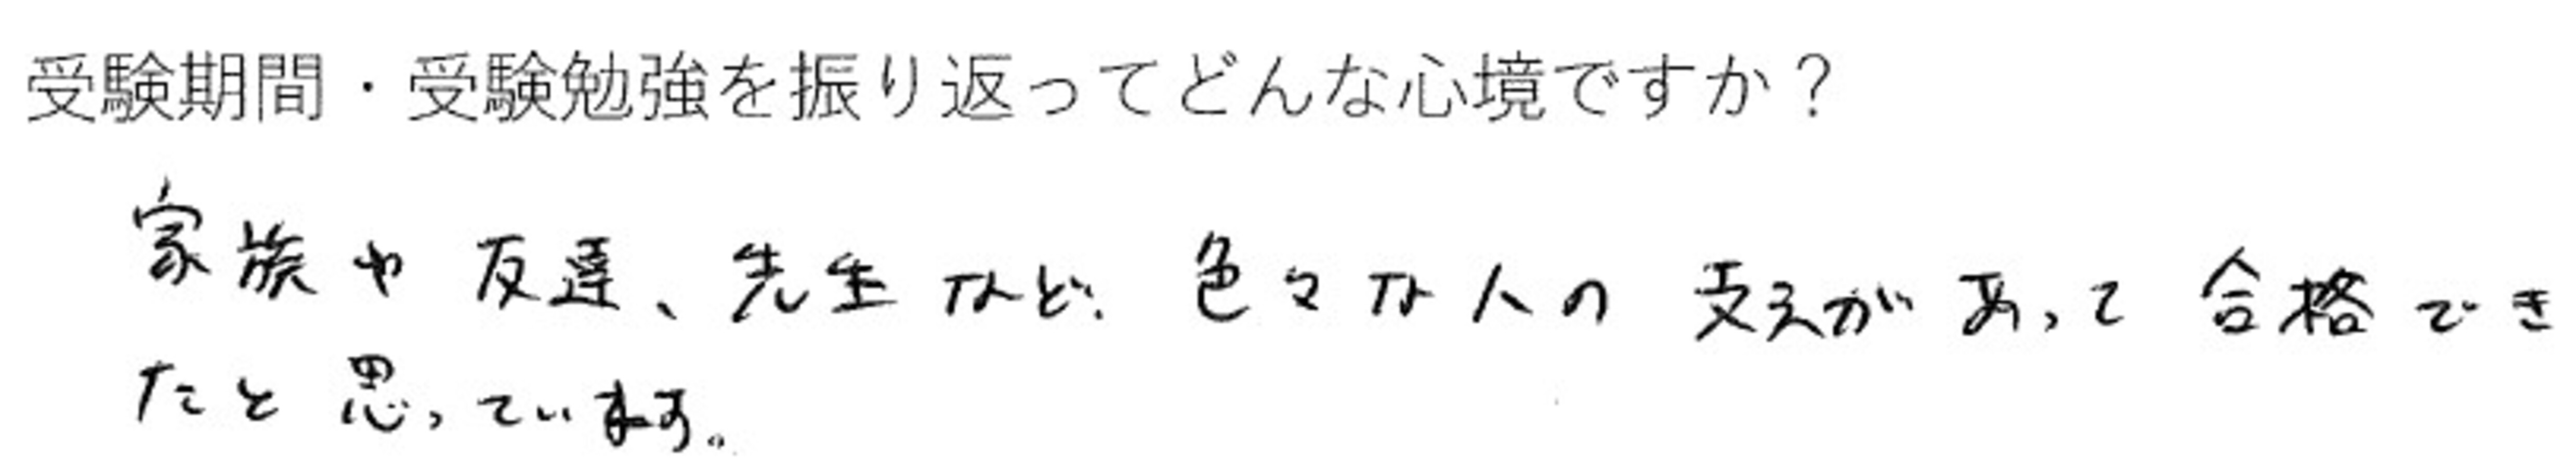 受験期間・受験勉強を振り返ってどんな心境ですか？
家族や友達、先生など、色々な人の支えがあって合格でき
たと思っています。